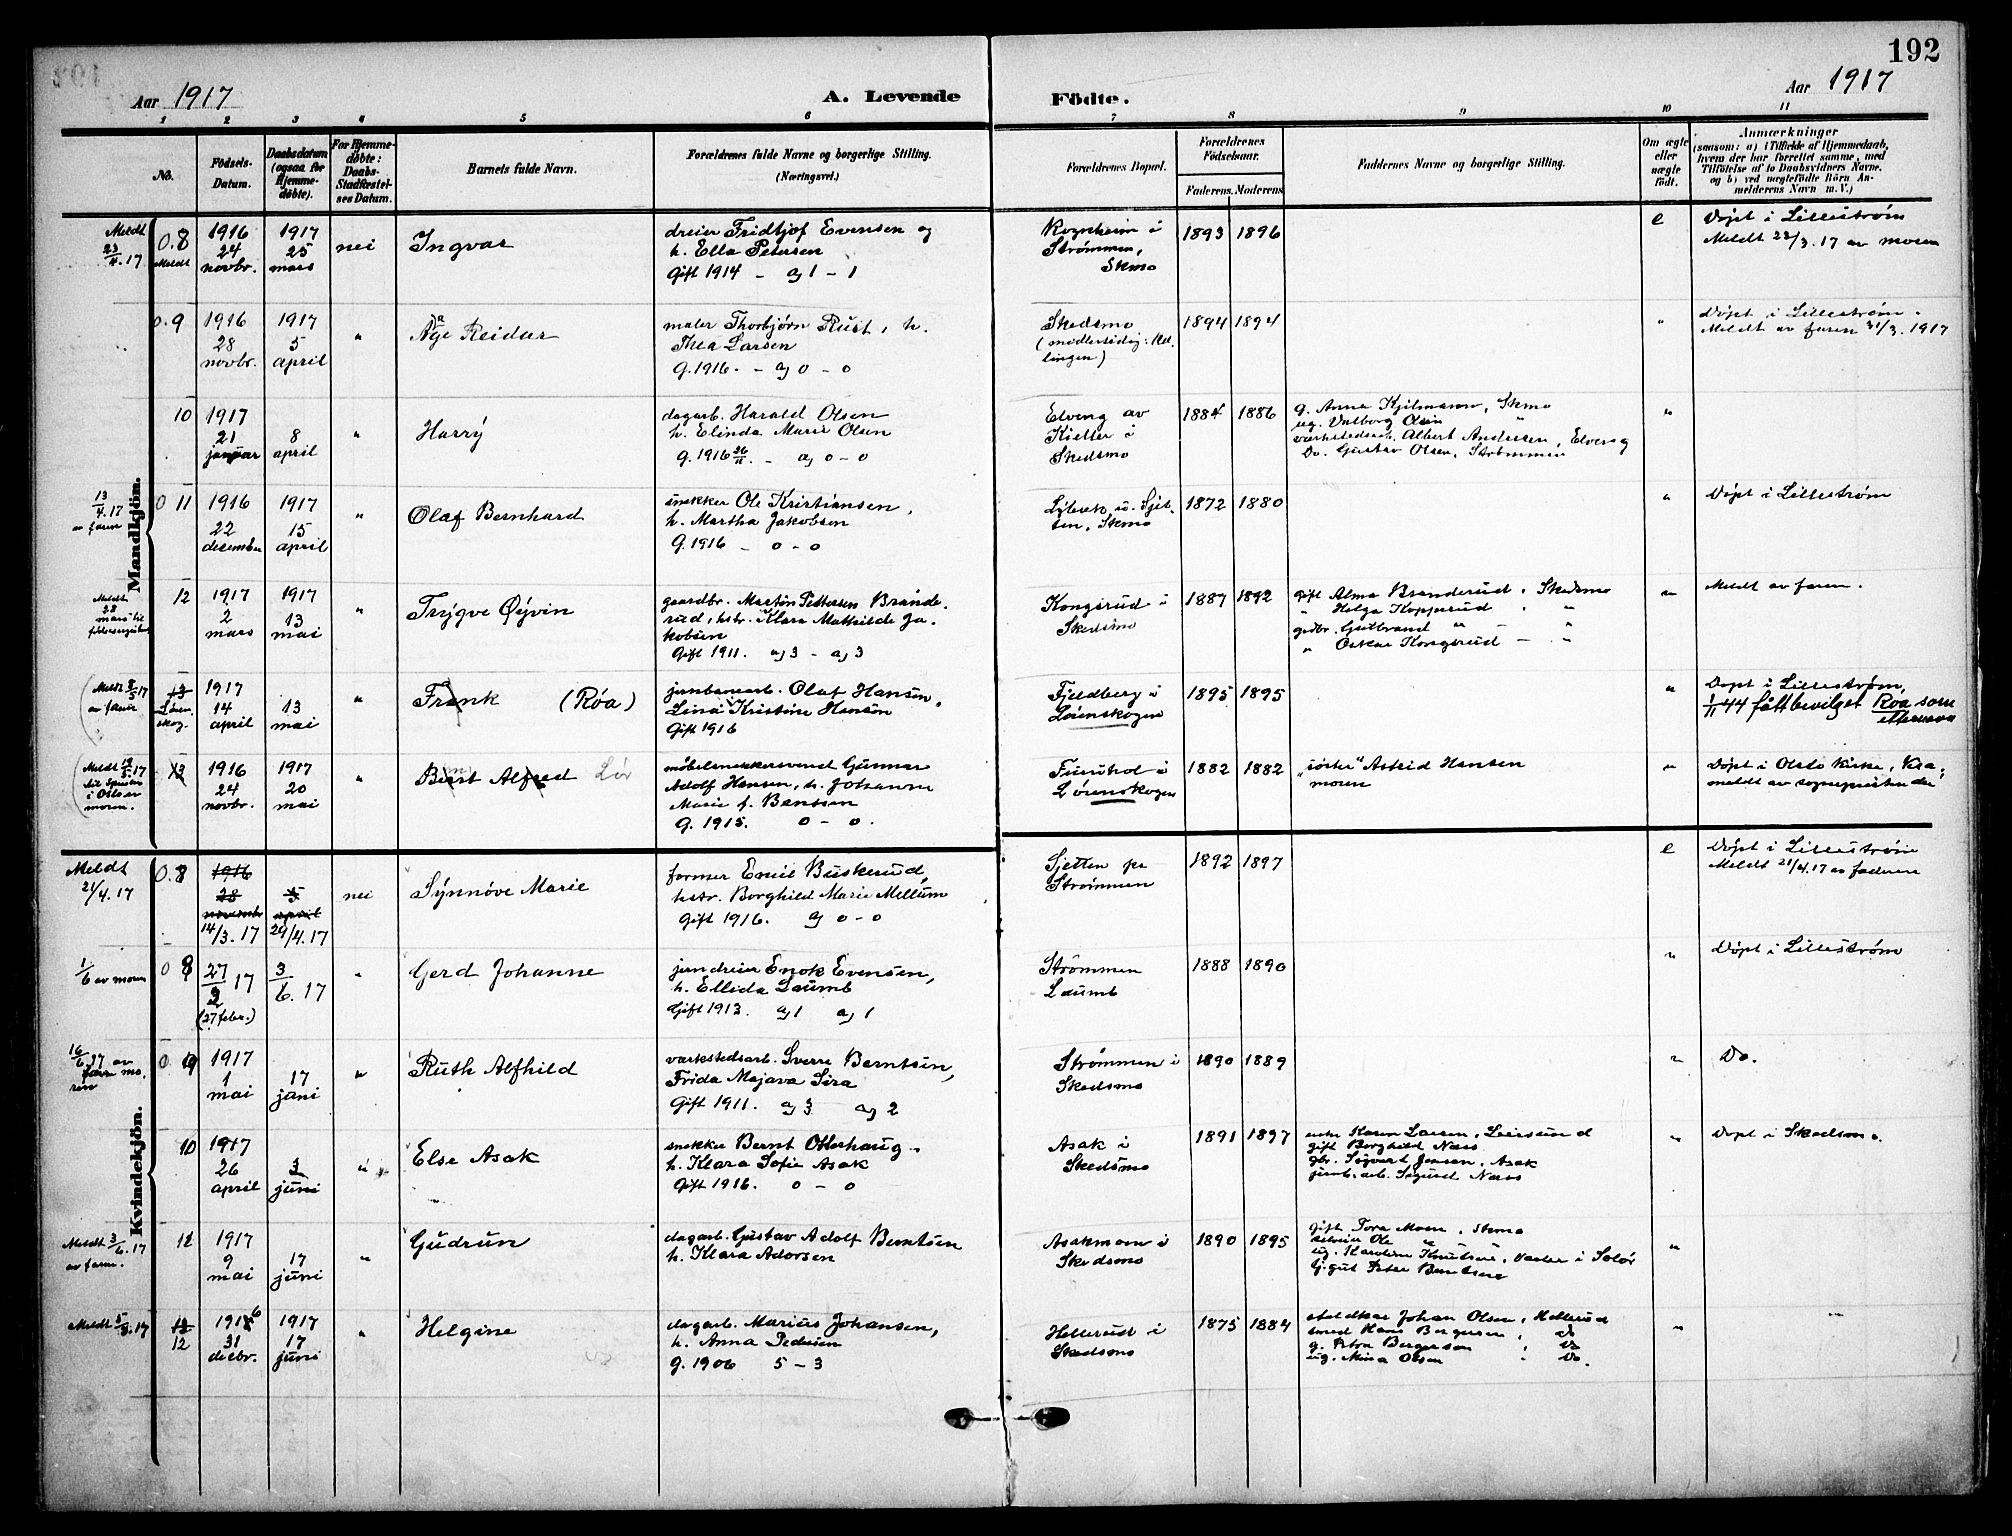 192
Aar 1917
A. Levende
Födte.
Aar 1917
1 2 3 4 5 6 7 8 9 10 11
No.
Födsels-Datum.
Daabsdatum (ogsaa for Hjemme-døbte).
For Hjemme-døbte: Daabs-Stadfæstel-ses Datum.
Barnets fulde Navn.
Forældrenes fulde Navne og borgerlige Stilling.
(Næringsvei.)
Forældrenes Bopæl.
Forældrenes Födselsaar.
Faderens. Moderens.
Faddernes Navne og borgerlige Stilling.
Om ægte eller uægte födt.
Anmærkninger
(saasom: a) i Tilfælde af Hjemmedaab, hvem der har forrettet samme, med Tilføielse af to Daabsvidners Navne, og b) ved uægtefödte Börn An-melderens Navn m. V.)
Mandkjön.
Meldt 23/4.17
0.8
Meldt
1916 24 novbr.
1917 25 mars
nei
Ingvar
dreier Fridtjof Evensen og
h. Ella Petersen
Gift 1914 - ag 1 - 1
Rognheim i
Strømmen,
Skmo
1893 1896
e
Døpt i Lillestrøm
Meldt 23/3.17 av moren
0.9
1916 28 novbr.
1917 5 april
"
Åge Reidar
maler Thorbjørn Rust, h.
Thea Larsen
g. 1916. - ag 0 - 0
Skedsmo
1894 1894
"
Døpt i Lillestrøm.
Meldt av faren 31/3.1917
10
1917 21 januar
8 april
"
Harry
dagarb. Harald Olsen
h. Elinda Marie Olsen
g. 1916 26/11. - ag 0 - 0
Elveng av
Kjeller i
Skedsmo
1884 1886
g. Anna Kjilmann, Skmo
ug. Valborg Olsen "
værkstedsarb. Albert Andersen, Elveng
Do. Gustav Olsen, Strømmen
"
13/4.17
av faren
0 11
1916 22 desember
1917 15 april
"
Olaf Bernhard
snekker Ole Kristiansen,
h. Martha Jakobsen
G. 1916 - 0 - 0
1872 1880
"
Døpt i Lillestrøm
Meldt
28
mars
12
1917 2 mars
1917 13 mai
"
Trygve Øyvin
gaardbr. Martin Pettersen Brande-
rud, hstr. Klara Mathilde Ja-
kobsen
Gift 1911. ag 3 - ag 3
Kongsrud i
Skedsmo
1887 1892
gift Alma Branderud, Skedsmo
" Helga Kopperud, "
grdbr. Gulbrand " "
" Oskar Kongsrud - "
"
Meldt av faren.
Meldt 8/5.17
av faren
13
Løren-
skog.
1917 14 april
13 mai
"
Frank (Røa)
jernbanearb. Olaf Hansen,
Lina Kristine Hansen
Gift 1916
Fjeldberg i
Lørenskogen
1895 1895
"
Døpt i Lillestrøm,
1/11 44 fått bevilget Roa som
etternavn
Meldt 12/5.17
i Oslo av
moren.
13
1916 24 novbr.
1917 20 mai
"
Bernt Alfred Lør
møbelsnekkersvend Gunnar
Adolf Hansen, h. Johanne
Marie f. Bentsen
G. 1915. 0 - 0.
Furuhol i
Lørenskogen
1882 1882
"søster" Astrid Hansen
moren
"
Døpt i Oslo kirke, Kra.
meldt av sognepresten der
Kvindekjön.
Meldt
21/4.17
0.8
1916 28 november
14/3.17
5 april
29/4.17
nei
Synnöve Marie
former Emil Buskerud,
hstr. Borghild Marie Mellum
Gift 1916. ag 0 - 0
Sjetten pr
Strømmen
1892 1897
e
Døpt i Lillestrøm
Meldt 21/4.17 av faderen
1/6 av moren
0 8
27/2 17
(27 febr.)
3/6.17
"
Gerd Johanne
jerndreier Enok Evensen,
h. Ellida Laumb
Gift 1913. ag 1 ag 1
Strømmen
Laumb
1888 1890
"
Døpt i Lillestrøm
16/6.17 av
moren
0 9
1917 1 mai
17 juni
"
Ruth Alfhild
værkstedsarb. Sverre Berntsen,
Frida Majava Sira
Gift 1911. ag 3 ag 2
Strømmen i
Skedsmo
1890 1889
"
Do.
10
1917 26 april
3 juni
"
Else Asak
snekker Bernt Otterhaug
h. Klara Sofie Asak
Gift 1916. 0 - 0
Asak i
Skedsmo
1891 1897
enke Karen Larsen, Leirsund
gift Borghild Næss
gbr. Sigvart Jensen, Asak
jernb.arb. Sigurd Næss
"
Døpt i Skedsmo.
Meldt 3/6.17
av faren.
11
1917 9 mai
17 juni
"
Gudrun
dagarb. Gustav Adolf Berntsen
h. Klara Adorsen
Asakmoen i
Skedsmo
1890 1895
gift Tora Moen, Skmo
Ole "
ug. Karoline Knutsen, Vaaler i Solør
Peter Berntsen
"
Meldt 5/3.17
13
12
1916 31 decbr.
1917 17 juni
"
Helgine
dagarb. Marius Johansen,
h. Anna Pedersen
g. 1906 5 - 3
Hellerud i
Skedsmo
1875 1884
staldkar Johan Olsen, Hellerud
smed Hans Bergersen, do
g. Petra Bergersen, Do
ug. Mina Olsen, Do.
"